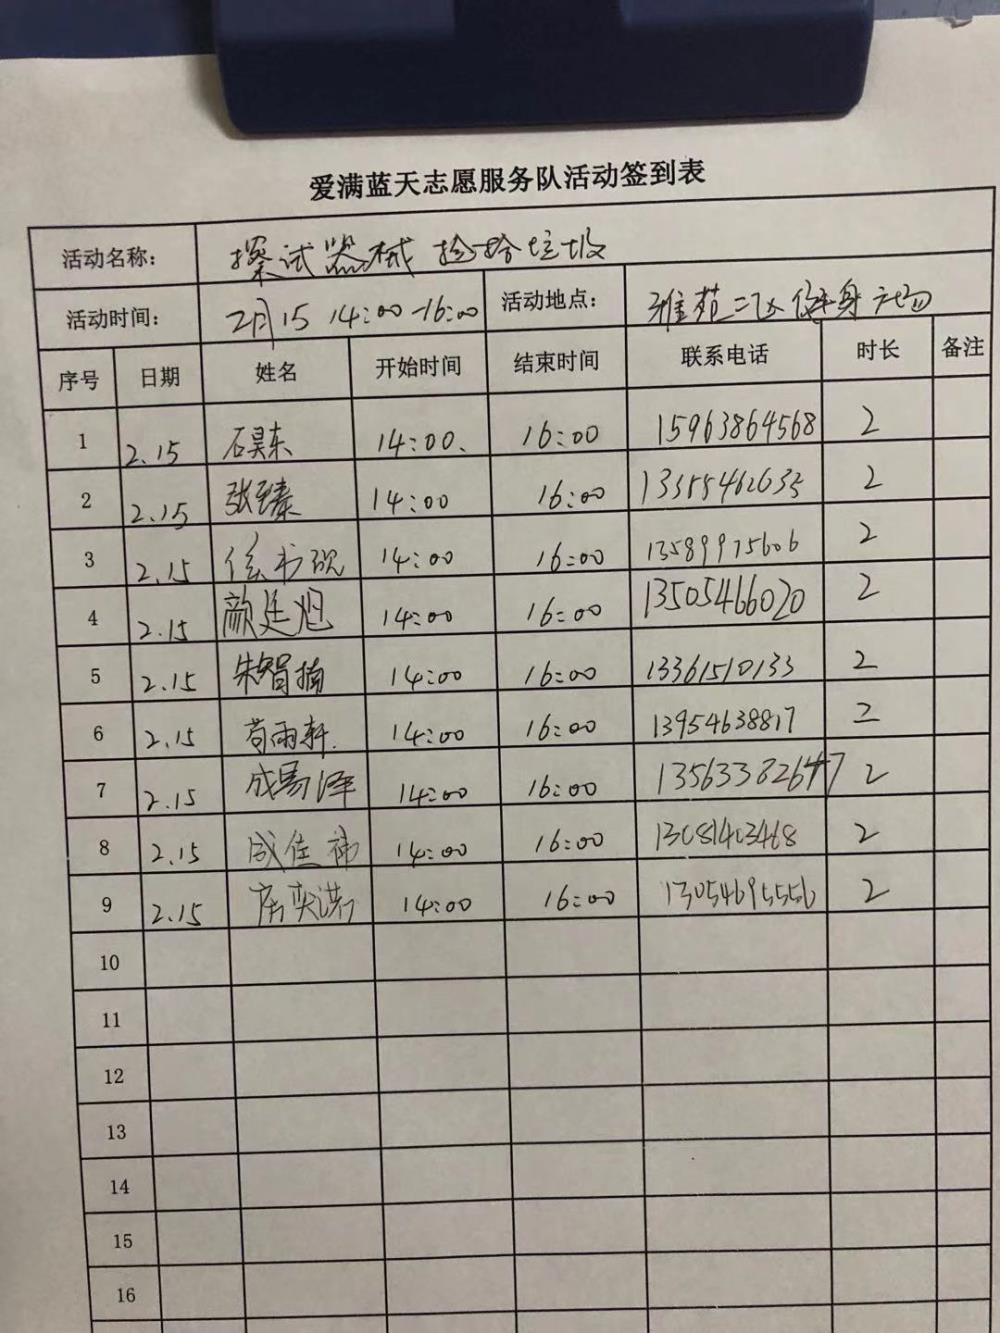 爱满蓝天志愿服务队活动签到表
活动名称： 擦试器械 捡拾垃圾
活动时间： 2月15 14:00-16:00 活动地点： 雅苑二区健身广场
序号 日期 姓名 开始时间 结束时间 联系电话 时长 备注
1 2.15 石昊东 14:00. 16:00 15963864568 2
2 2.15 14:00 16:00 2
3 2.15 14:00 16:00 13589975606 2
4 2.15 颜廷旭 14:00 16:00 13505466020 2
5 2.15 朱智楠 14:00 16:00 13361510133 2
6 2.15 苟雨轩 14:00 16:00 13954638817 2
7 2.15 成易泽 14:00 16:00 13563382647 2
8 2.15 成佳祎 14:00 16:00 13081403468 2
9 2.15 14:00 16:00 13054695556 2
10
11
12
13
14
15
16